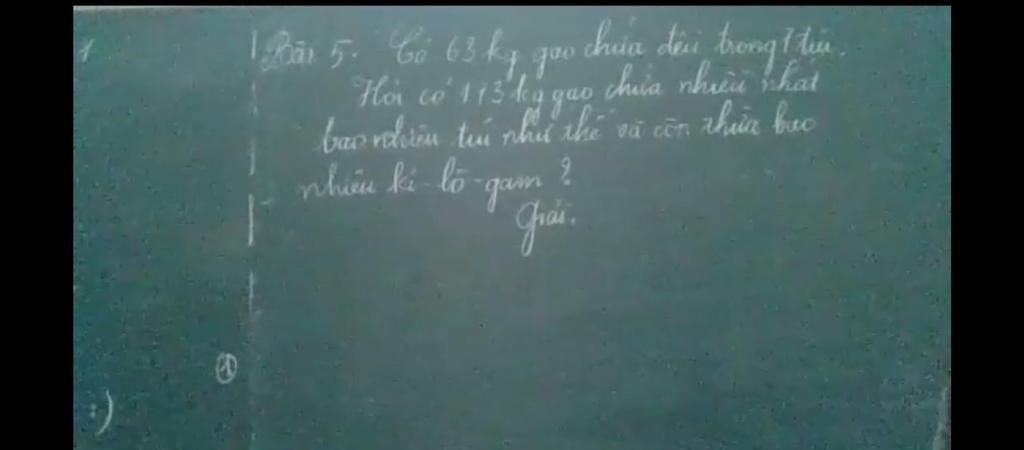 1
Bài 5. Có 63 kg gạo chứa đều trong 7 túi.
Hỏi có 113 kg gạo chứa nhiều nhất
bao nhiêu túi như thế và còn thừa bao
nhiêu ki-lô-gam?
Giải.
①
:)